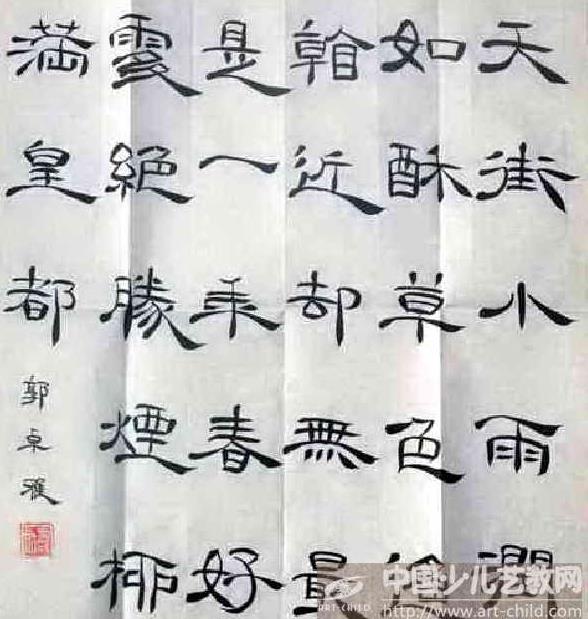 天街小雨潤
如酥草色
看近却無最
是一年春好
處絕勝煙柳
滿皇都
郭卓雅
中国少儿艺教网
ART-CHILD
http://www.art-child.com